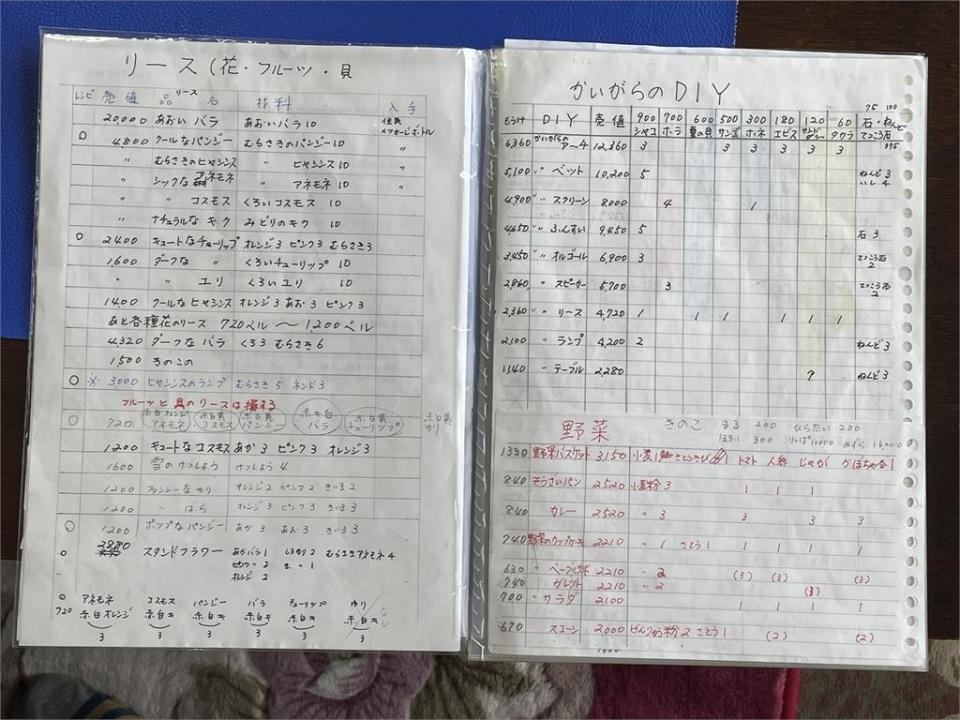 リース（花・フルーツ・貝
レシピ 売値 品リース名 材料 入手
20,000 あおいバラ あおいバラ10 住民 メッセージボトル
○ 4800 クールなパンジー むらさきのパンジー10 〃
〃 むらさきのヒヤシンス 〃 ヒヤシンス10 〃
〃 シックなアネモネ 〃 アネモネ10 〃
〃 〃 コスモス くろいコスモス 10
〃 ナチュラルなキク みどりのキク 10
○ 2400 キュートなチューリップ オレンジ3 ピンク3 むらさき3
1,600 ダークな 〃 くろいチューリップ 10
〃 〃 ユリ くろいユリ 10
1400 クールなヒヤシンス オレンジ3 あお3 ピンク3
あと各種花のリース 720ベル 〜 1,200ベル
4,320 ダークなバラ くろ3 むらさき6
1,500 きのこの
○ ※ 3000 ヒヤシンスのランプ むらさき5 ネンド3
フルーツと貝のリースは損する
○ 720 赤白オレンジアネモネ 赤白黄コスモス 赤白黄パンジー 赤キ白バラ 赤白黄チューリップ 赤白黄ゆり
1200 キュートなコスモス あか3 ピンク3 オレンジ3
1600 雪のけっしょう けっしょう4
1200 ファンシーなゆり オレンジ2 ピンク2 きいろ2
1200 〃 ばら オレンジ3 ピンク3 きいろ3
○ 1200 ポップなパンジー あか3 あお3 きいろ3
○ 2880 スタンドフラワー あかバラ1 しろゆり2 むらさきアネモネ4
ピンク〃2 き〃1
オレンジ2
○ アネモネ コスモス パンジー バラ チューリップ ゆり
720 赤白オレンジ 赤白キ 赤白キ 赤白キ 赤白キ 赤白キ
3 3 3 3 3 3
かいがらのDIY
75 100
もうけ DIY 売値 900シャコ 700ホラ 600夏の貝 500サンゴ 300ホネ 180エビス 120サンドダラー 60タカラ 石・ねんどてっこう石
375
6360 かいがらのアーチ 12,360 3 3 3 3 3 3
5,100 〃 ベット 10,200 5 ねんど3 いし4
4,900 〃 スクリーン 8000 4 1
4650 〃 ふんすい 9,450 5 石3
3,450 〃 オルゴール 6,900 3 てっこう石2
2,860 〃 スピーカー 5,700 3 てっこう石2
2,360 〃 リース 4,720 1 1 1 1 1 1
2,100 〃 ランプ 4,200 2 ねんど3
1140 〃 テーブル 2,280 7 ねんど3
野菜 きのこ まる 200 ひらたい 200
ほそい 300 りっぱ10000 めずら 16,000
1330 野菜バスケット 3,150 小麦1 さとうきび トマト 人参 じゃが かぼちゃ各1
840 そうざいパン 2520 小麦粉3 1 1 1
840 カレー 2520 〃 3 3 3 3
740 野菜のカップケーキ 2210 〃 1 さとう1 1 1 1
630 〃 ベーグルサンド 2210 〃 2 (3) (3) (3)
740 ガレット 2210 〃 2 (3)
700 〃 サラダ 2100 1 1 1 1
670 スコーン 2000 ぜんりゅう粉2 さとう1 (2) (2)